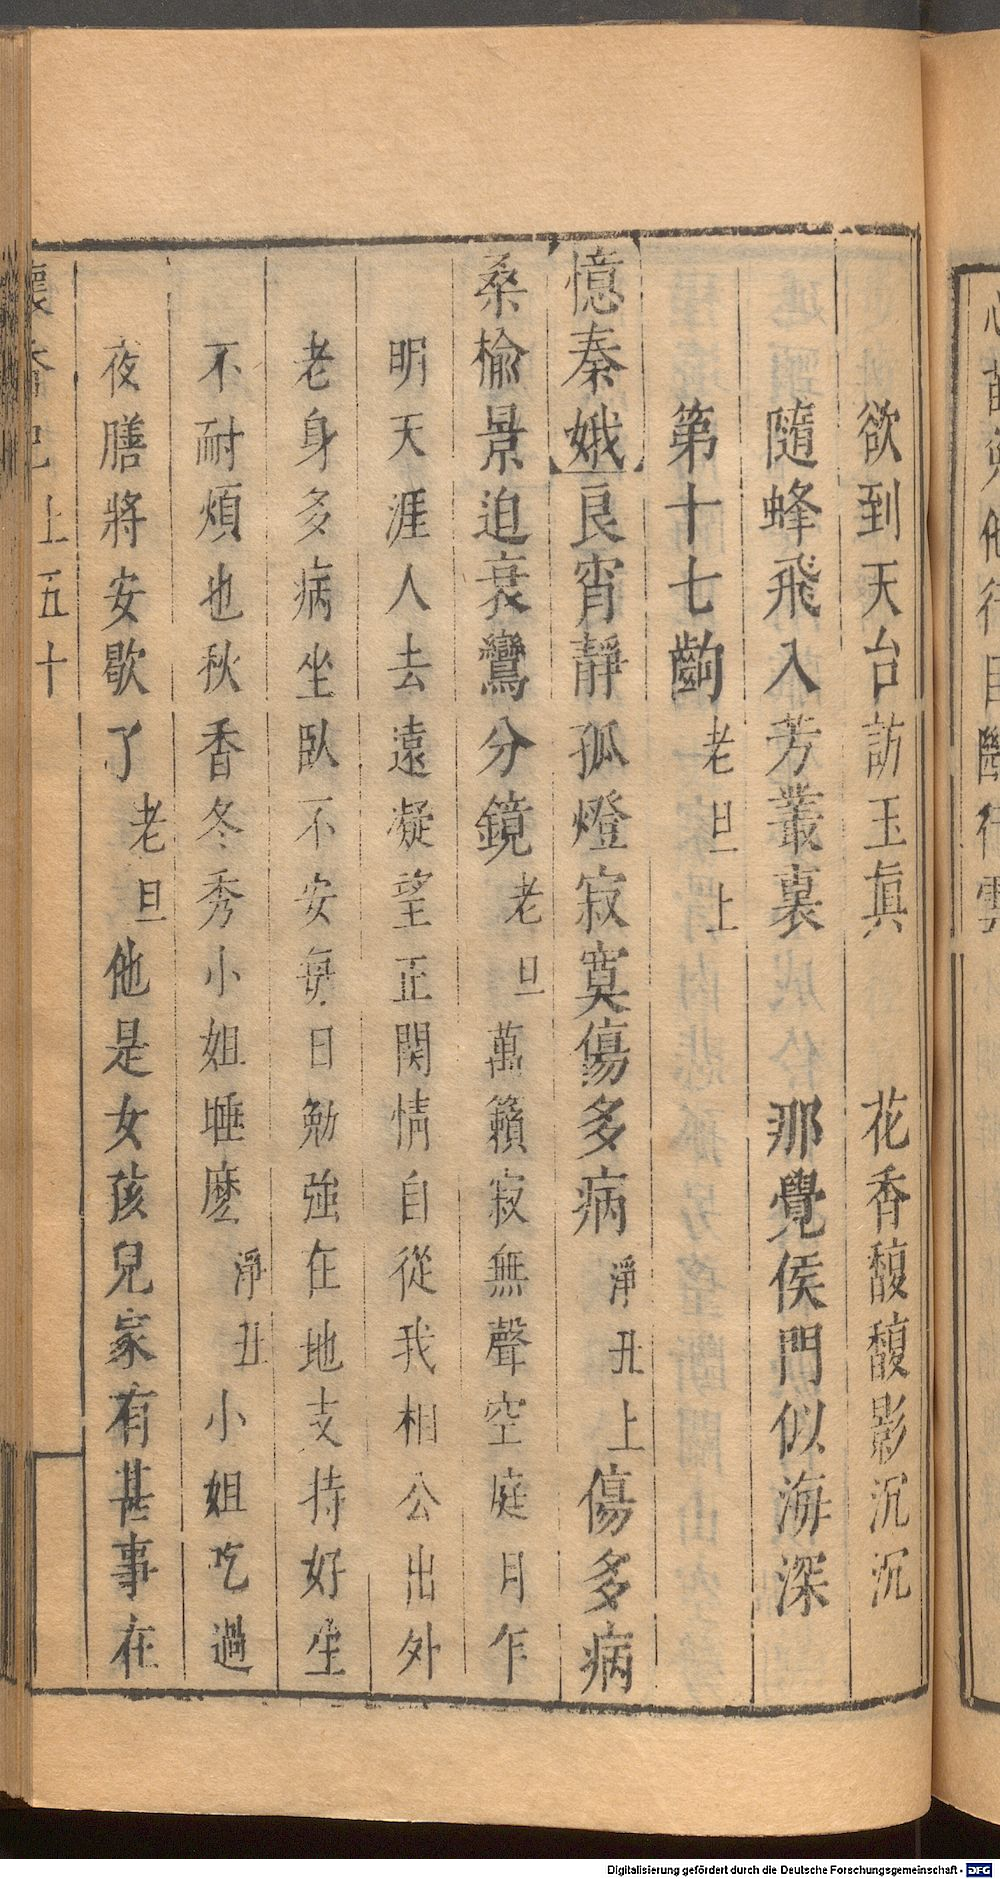 欲到天台訪玉眞　花香馥馥影沉沉
隨蜂飛入芳叢裏　那覺侯門似海深
第十七齣 老旦上
憶秦娥 良宵靜孤燈寂寞傷多病 淨丑上 傷多病
桑榆景迫衰鸞分鏡 老旦 萬籟寂無聲空庭月乍
明天涯人去遠凝望正関情自從我相公出外
老身多病坐臥不安每日勉強在地支持好生
不耐煩也秋香冬秀小姐睡麼 淨丑 小姐吃過
夜膳將安歇了 老旦 他是女孩兒家有甚事在
懷香記 上 五十
Digitalisierung gefördert durch die Deutsche Forschungsgemeinschaft - DFG